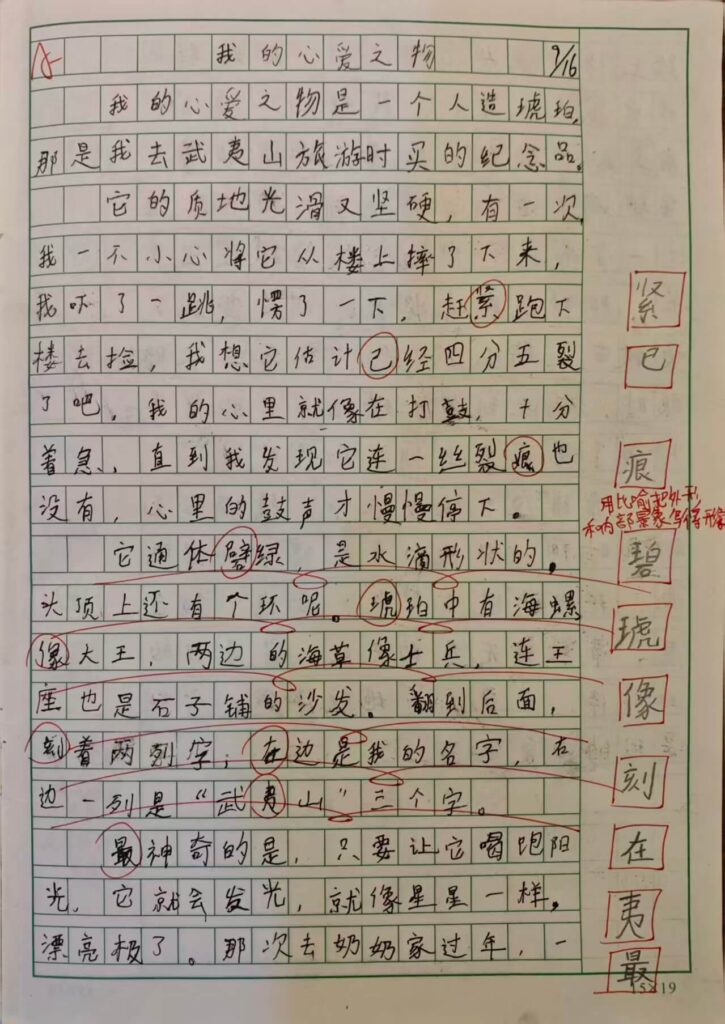 A
我的心爱之物 9/16
我的心爱之物是一个人造琥珀,
那是我去武夷山旅游时买的纪念品。
它的质地光滑又坚硬，有一次,
我一不小心将它从楼上摔了下来，
我吓了一跳，愣了一下，赶紧跑下
楼去捡，我想它估计已经四分五裂
了吧，我的心里就像在打鼓，十分
着急，直到我发现它连一丝裂痕也
没有，心里的鼓声才慢慢停下。
它通体碧绿，是水滴形状的。
头顶上还有个环呢。琥珀中有海螺
像大王，两边的海草像士兵，连王
座也是石子铺的沙发。翻到后面，
刻着两列字；在边是我的名字，右
边一列是“武夷山”三个字。
最神奇的是，只要让它喝饱阳
光，它就会发光，就像星星一样。
漂亮极了。那次去奶奶家过年，一
紧
已
痕
用比喻把外形
和内部景象写得形象
碧
琥
像
刻
在
夷
最
15×19